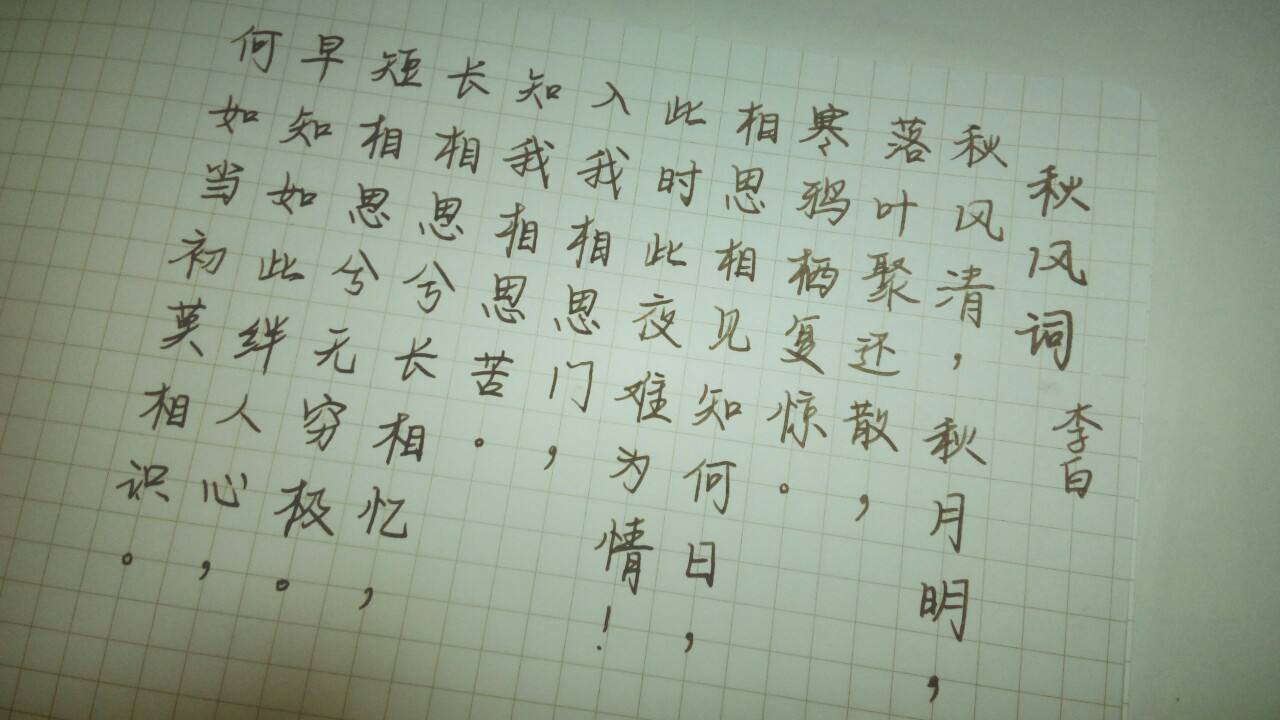 秋风词 李白
秋风清，秋月明，
落叶聚还散，
寒鸦栖复惊。
相思相见知何日，
此时此夜难为情！
入我相思门，
知我相思苦。
长相思兮长相忆，
短相思兮无穷极。
早知如此绊人心，
何如当初莫相识。